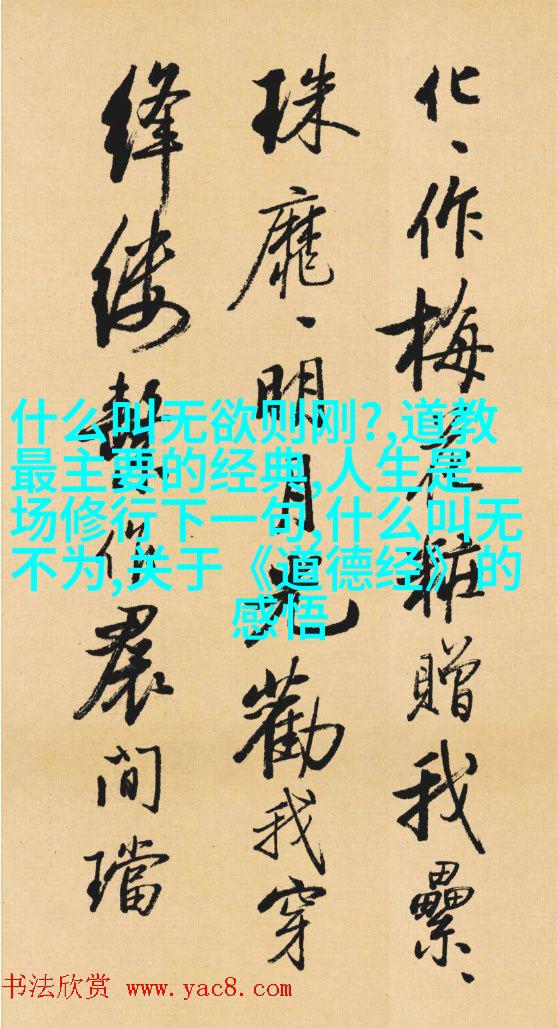 化、作梅花粧贈我纍、
珠靡、明月光勸我穿
絳縷作裠間璫
什么叫无欲则刚?,道教
最主要的经典,人生是一
场修行下一句,什么叫无
不为,关于《道德经》的
感悟
书法欣赏 www.yac8.com